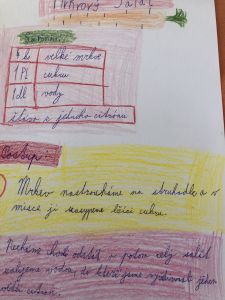 Mrkvový salát
Suroviny:
4 ks velké mrkve
1 Pl cukru
1 dl vody
šťáva z jednoho citrónu
Postup:
Mrkev nastrouháme na struhadle a v
misce ji zasypeme lžící cukru.
Necháme chvíli odstát a potom celý salát
zalijeme vodou, do které jsme vymačkali jeden
citrón.